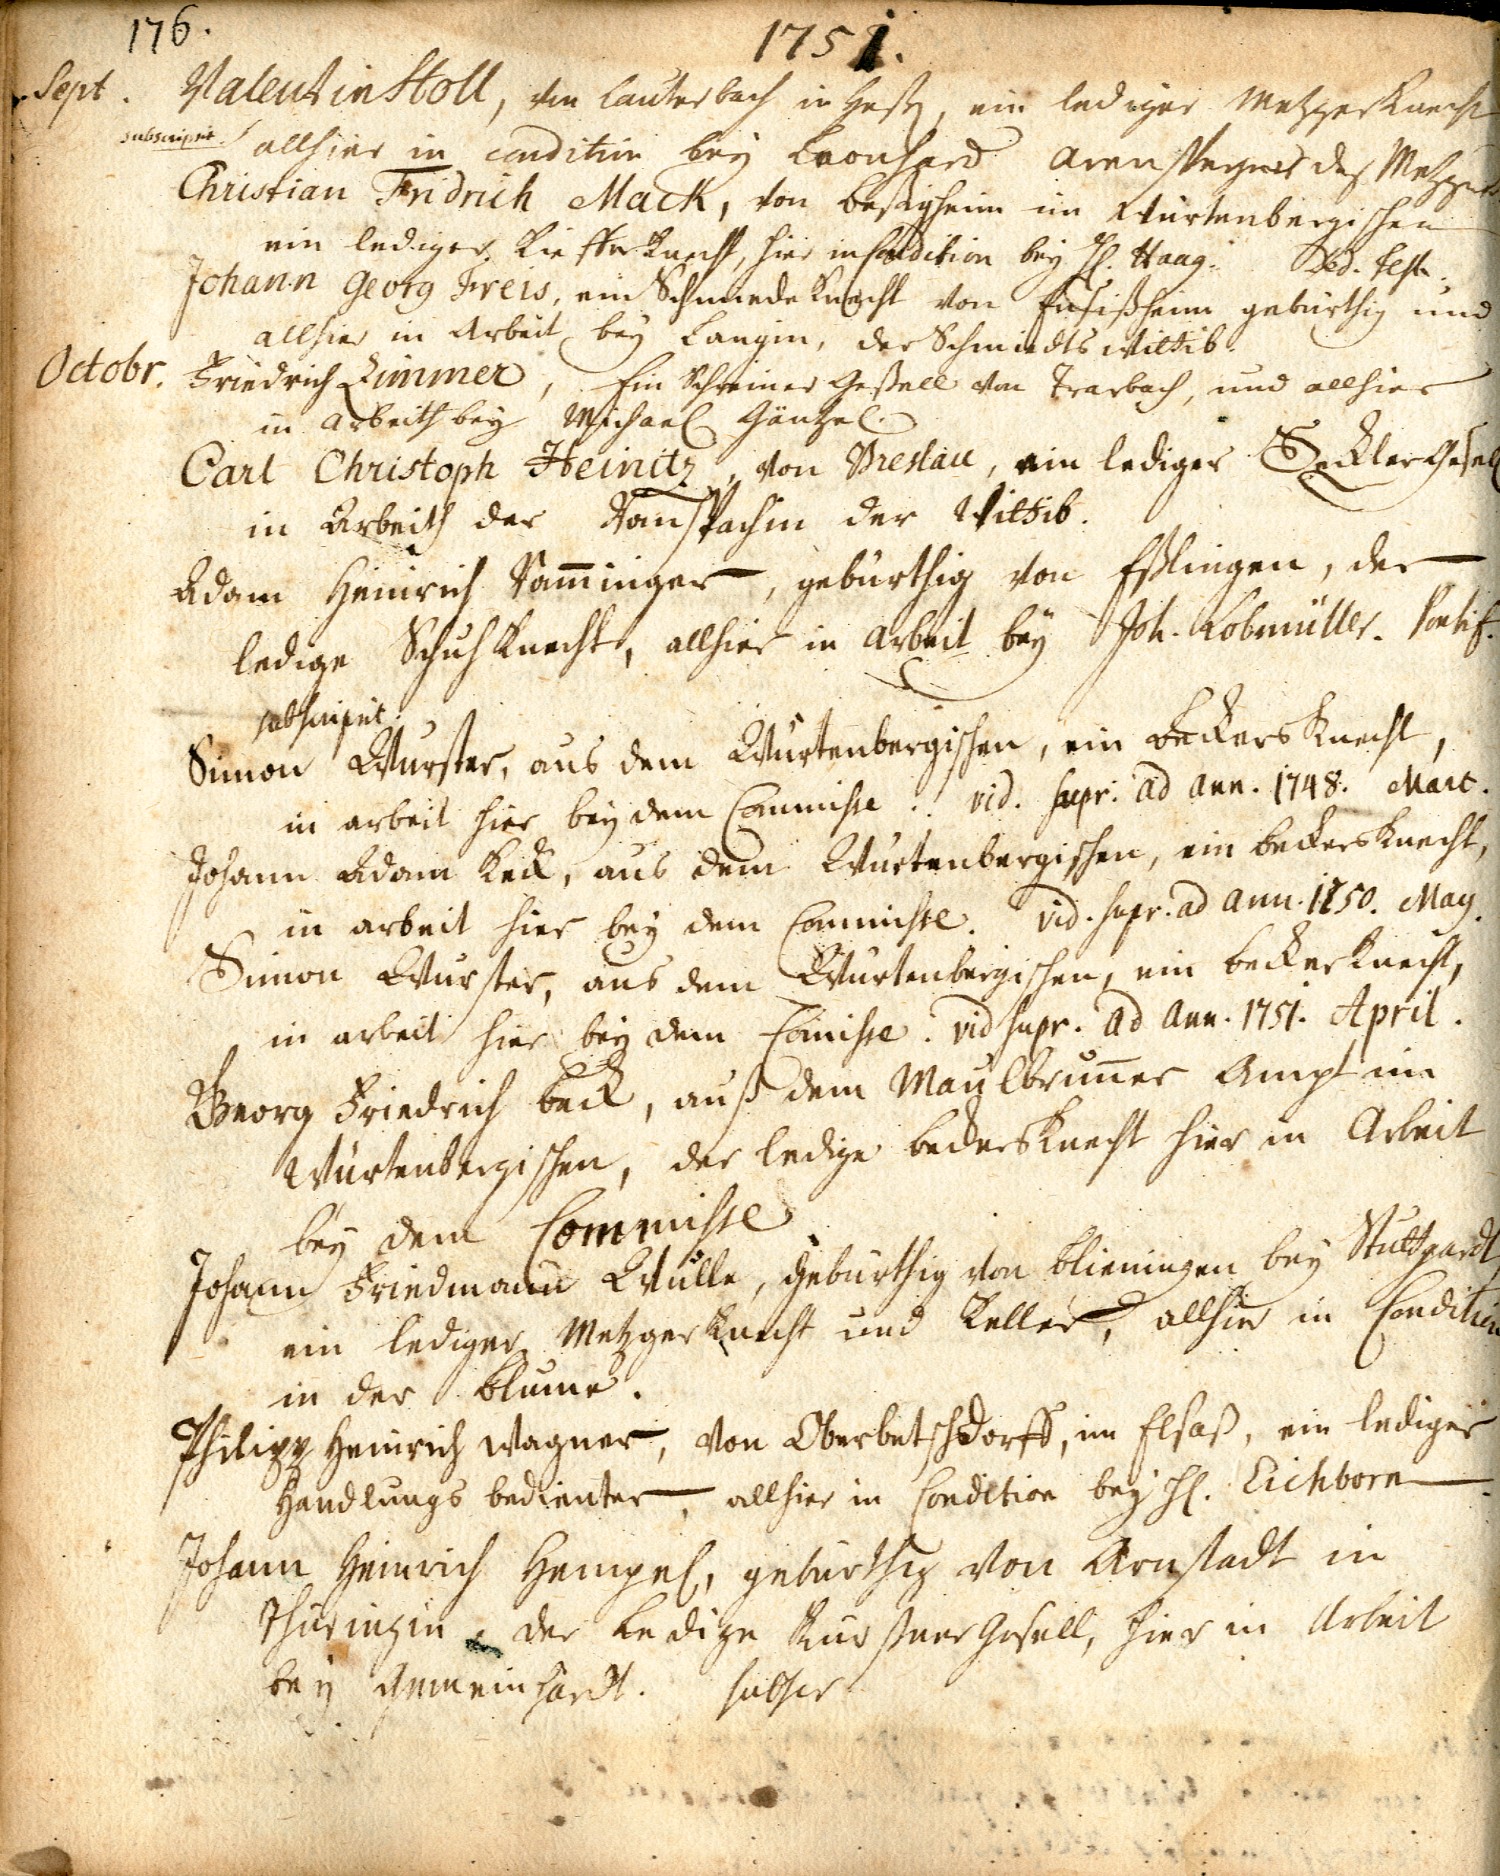 176.
1751.
Sept. Valentin Stoll, von Lauterbach in Heß, ein lediger Metzgerknecht
subscripsit. allhier in condition bey Leonhard des Metzgers
Christian Fridrich Mack, von Besigheim im Würtenbergischen
ein lediger Kieffer Knecht, hier in Condition bey H. Haag. Ded. Test.
Johann Georg Freis, ein Schmiedeknecht von gebürthig und
allhier in Arbeit bey Langin, der Schmiedts Wittib.
Octobr. Friedrich Zimmer, Ein Schreiner Gesell von Trarbach, und allhier
in Arbeith bey Michael Gäntzel.
Carl Christoph Heinitz, von Breslau, ein lediger Seckler Gesell
in Arbeith der der Wittib.
Adam Heinrich Ramminger, gebürthig von Eßlingen, der
ledige Schuhknecht, allhier in Arbeit bey Joh. Lobmüller.
subscripsit.
Simon Wurster, aus dem Würtenbergischen, ein beckersknecht,
in arbeit hier bey dem Commisse. vid. supr. ad ann. 1748. Mart.
Johann Adam Keck, aus dem Würtenbergischen, ein beckersknecht,
in arbeit hier bey dem Commisse. vid. supr. ad ann. 1750. May.
Simon Wurster, aus dem Würtenbergischen, ein beckerknecht,
in arbeit hier bey dem Com̄isse. vid supr. ad ann. 1751. April.
Georg Friedrich Beck, auß dem Maulbrun̄er Ampt im
Würtenbergischen, der ledige beckersknecht hier in Arbeit
bey dem Commisse
Johann Friedmann Wülle, gebürthig von Blieningen bey Stuttgardt
ein lediger Metzgerknecht und Keller, allhier in Condition
in der Blume.
Philipp Heinrich Wagner, von Oberbetschdorff, im Elsaß, ein lediger
Handlungs bedienter, allhier in Condition bey H. Eichborn
Johann Heinrich Hempel, gebürthig von Arnstadt in
Thüringen, der Ledige Kürßner Gesell, hier in Arbeit
bey Gemeinhardt. subscr